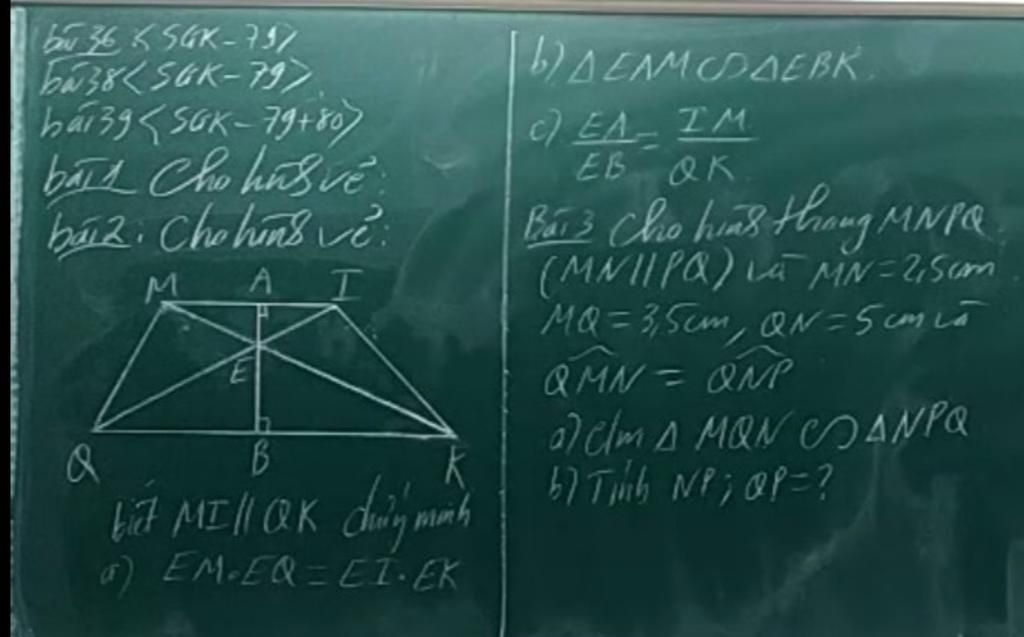 bài 36 < SGK - 79 >
bài 38 < SGK - 79 >
bài 39 < SGK - 79 + 80 >
bài 1 Cho hình vẽ:
bài 2: Cho hình vẽ:
M A I
E
Q B K
biết MI // QK chứng minh
a) EM.EQ = EI.EK
b) ΔEAM ∽ ΔEBK.
c) EA/EB = IM/QK.
Bài 3 Cho hình thang MNPQ
(MN // PQ) và MN = 2,5cm
MQ = 3,5cm, QN = 5cm và
\widehat{QMN} = \widehat{QNP}
a) c/m Δ MQN ∽ ΔNPQ
b) Tính NP; QP = ?